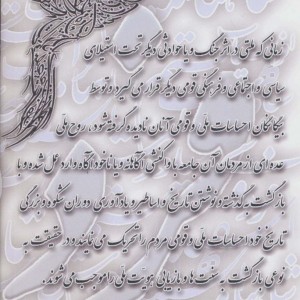 زمانی که ملتی در اثر جنگ و یا حوادثی دیگر تحت استیلای
سیاسی و اجتماعی و فرهنگی قومی دیگر قرار می گیرد و توسط
بیگانگان احساسات ملی و قومی آنان نادیده گرفته شود، روح ملی
عده ای از مردمان آن جامعه با واکنشی آگاهانه و یا ناخودآگاه وارد عمل شده و با
بازگشت به گذشته و نوشتن تاریخ و اساطیر و یادآوری دوران شکوه و بزرگی
تاریخ خود احساسات ملی و قومی مردم را تحریک می نمایند و در حقیقت به
نوعی بازگشت به سنت ها و بازیابی هویت ملی را موجب می شوند.